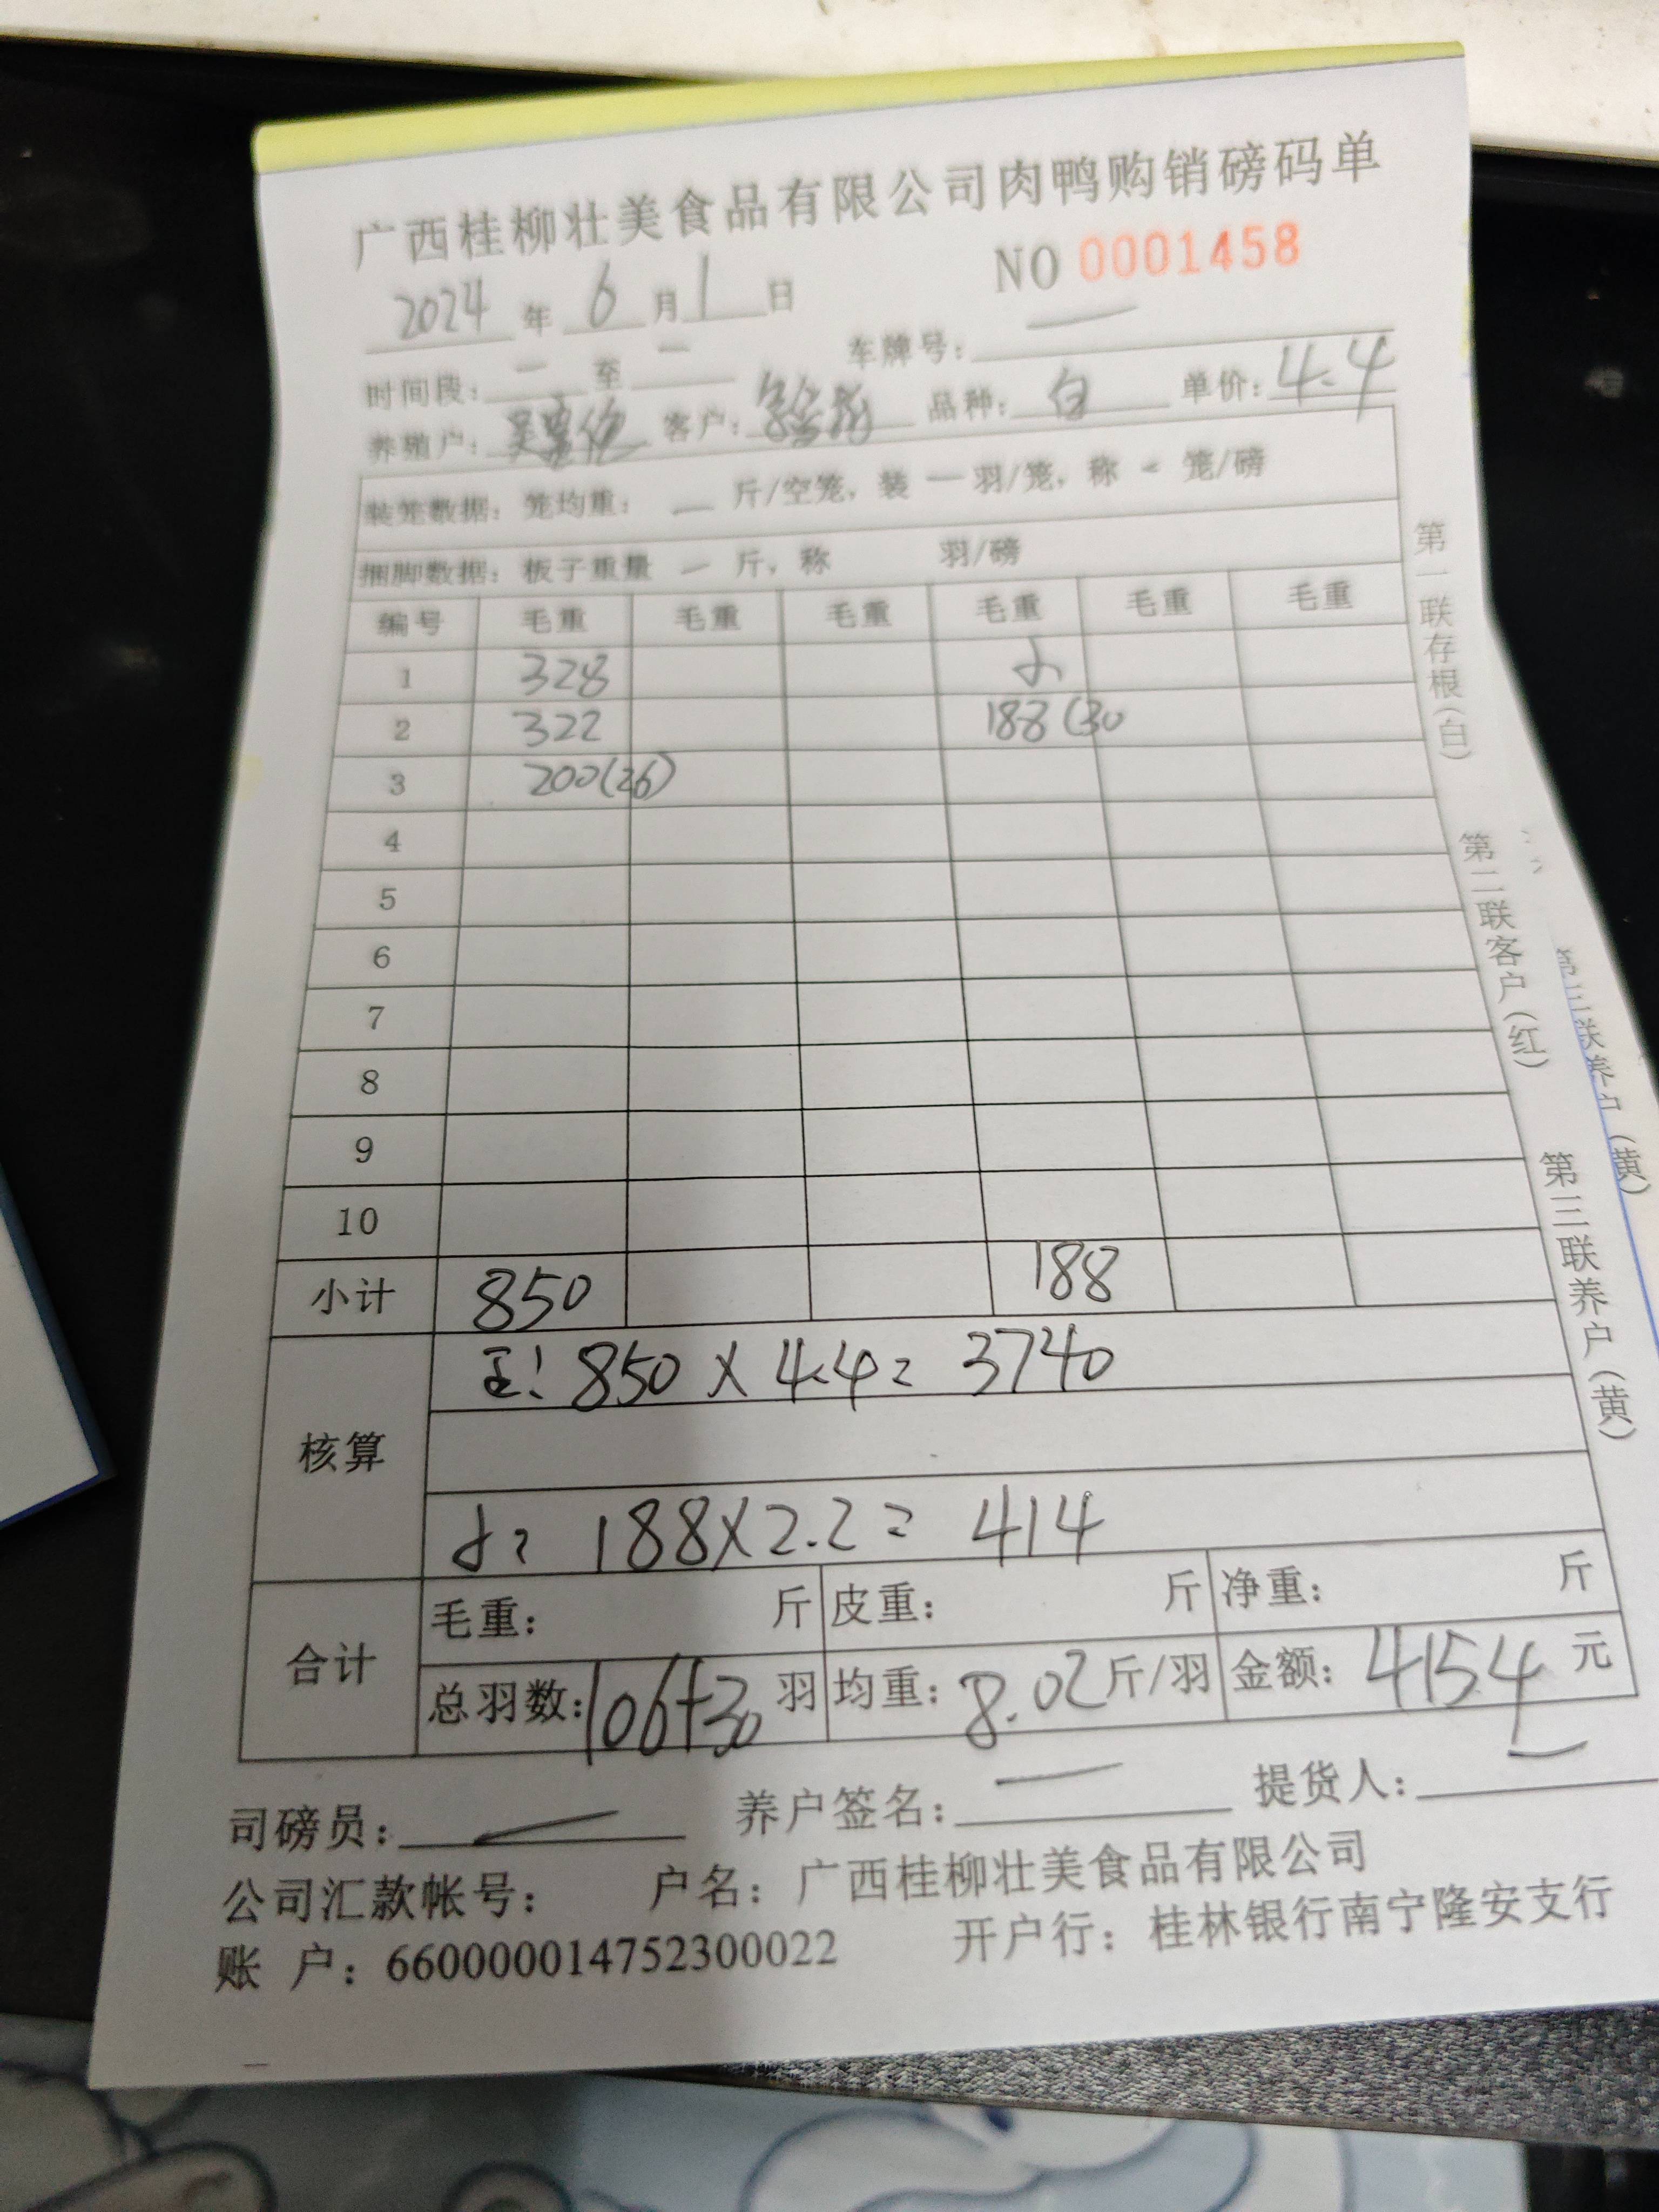 广西桂柳壮美食品有限公司肉鸭购销磅码单
NO 0001458
2024 年 6 月 1 日
时间段: — 至 — 车牌号: —
养殖户: 客户: 品种: 白 单价: 4.4
装笼数据: 笼均重: — 斤/空笼, 装 — 羽/笼, 称 - 笼/磅
捆脚数据: 板子重量 — 斤, 称 羽/磅
编号 毛重 毛重 毛重 毛重 毛重 毛重
1 328
2 322 188 (30
3 200(26)
4
5
6
7
8
9
10
小计 850 188
核算
850 × 4.4 = 3740
188×2.2 = 414
合计
毛重: 斤 皮重: 斤 净重: 斤
总羽数: 106+30 羽 均重: 8.02 斤/羽 金额: 4154 元
司磅员: — 养户签名: — 提货人: —
公司汇款帐号: 户名: 广西桂柳壮美食品有限公司
账 户: 660000014752300022 开户行: 桂林银行南宁隆安支行
第一联存根(白)
第二联客户(红)
第三联养户(黄)
第三联养户(黄)